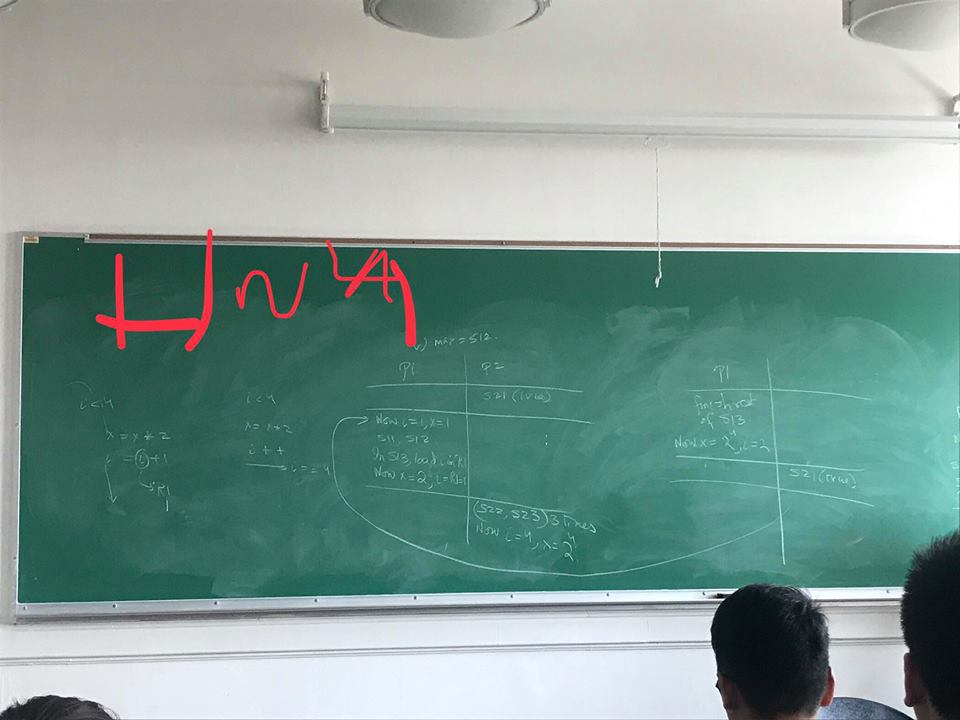 max = 512.
i<4
x = x*2
i = i+1
R1
1
i<4
x = x*2
i++
i==4
P1 P2
S21 (true)
Now i=1, x=1
S11, S12
In S13, load i in R1
Now x=2, i=R1=1
(S22, S23) 3 times
Now i=4, x=2^4
P1
finish rest
of S13.
Now x=2^4, i=2
S21 (true)